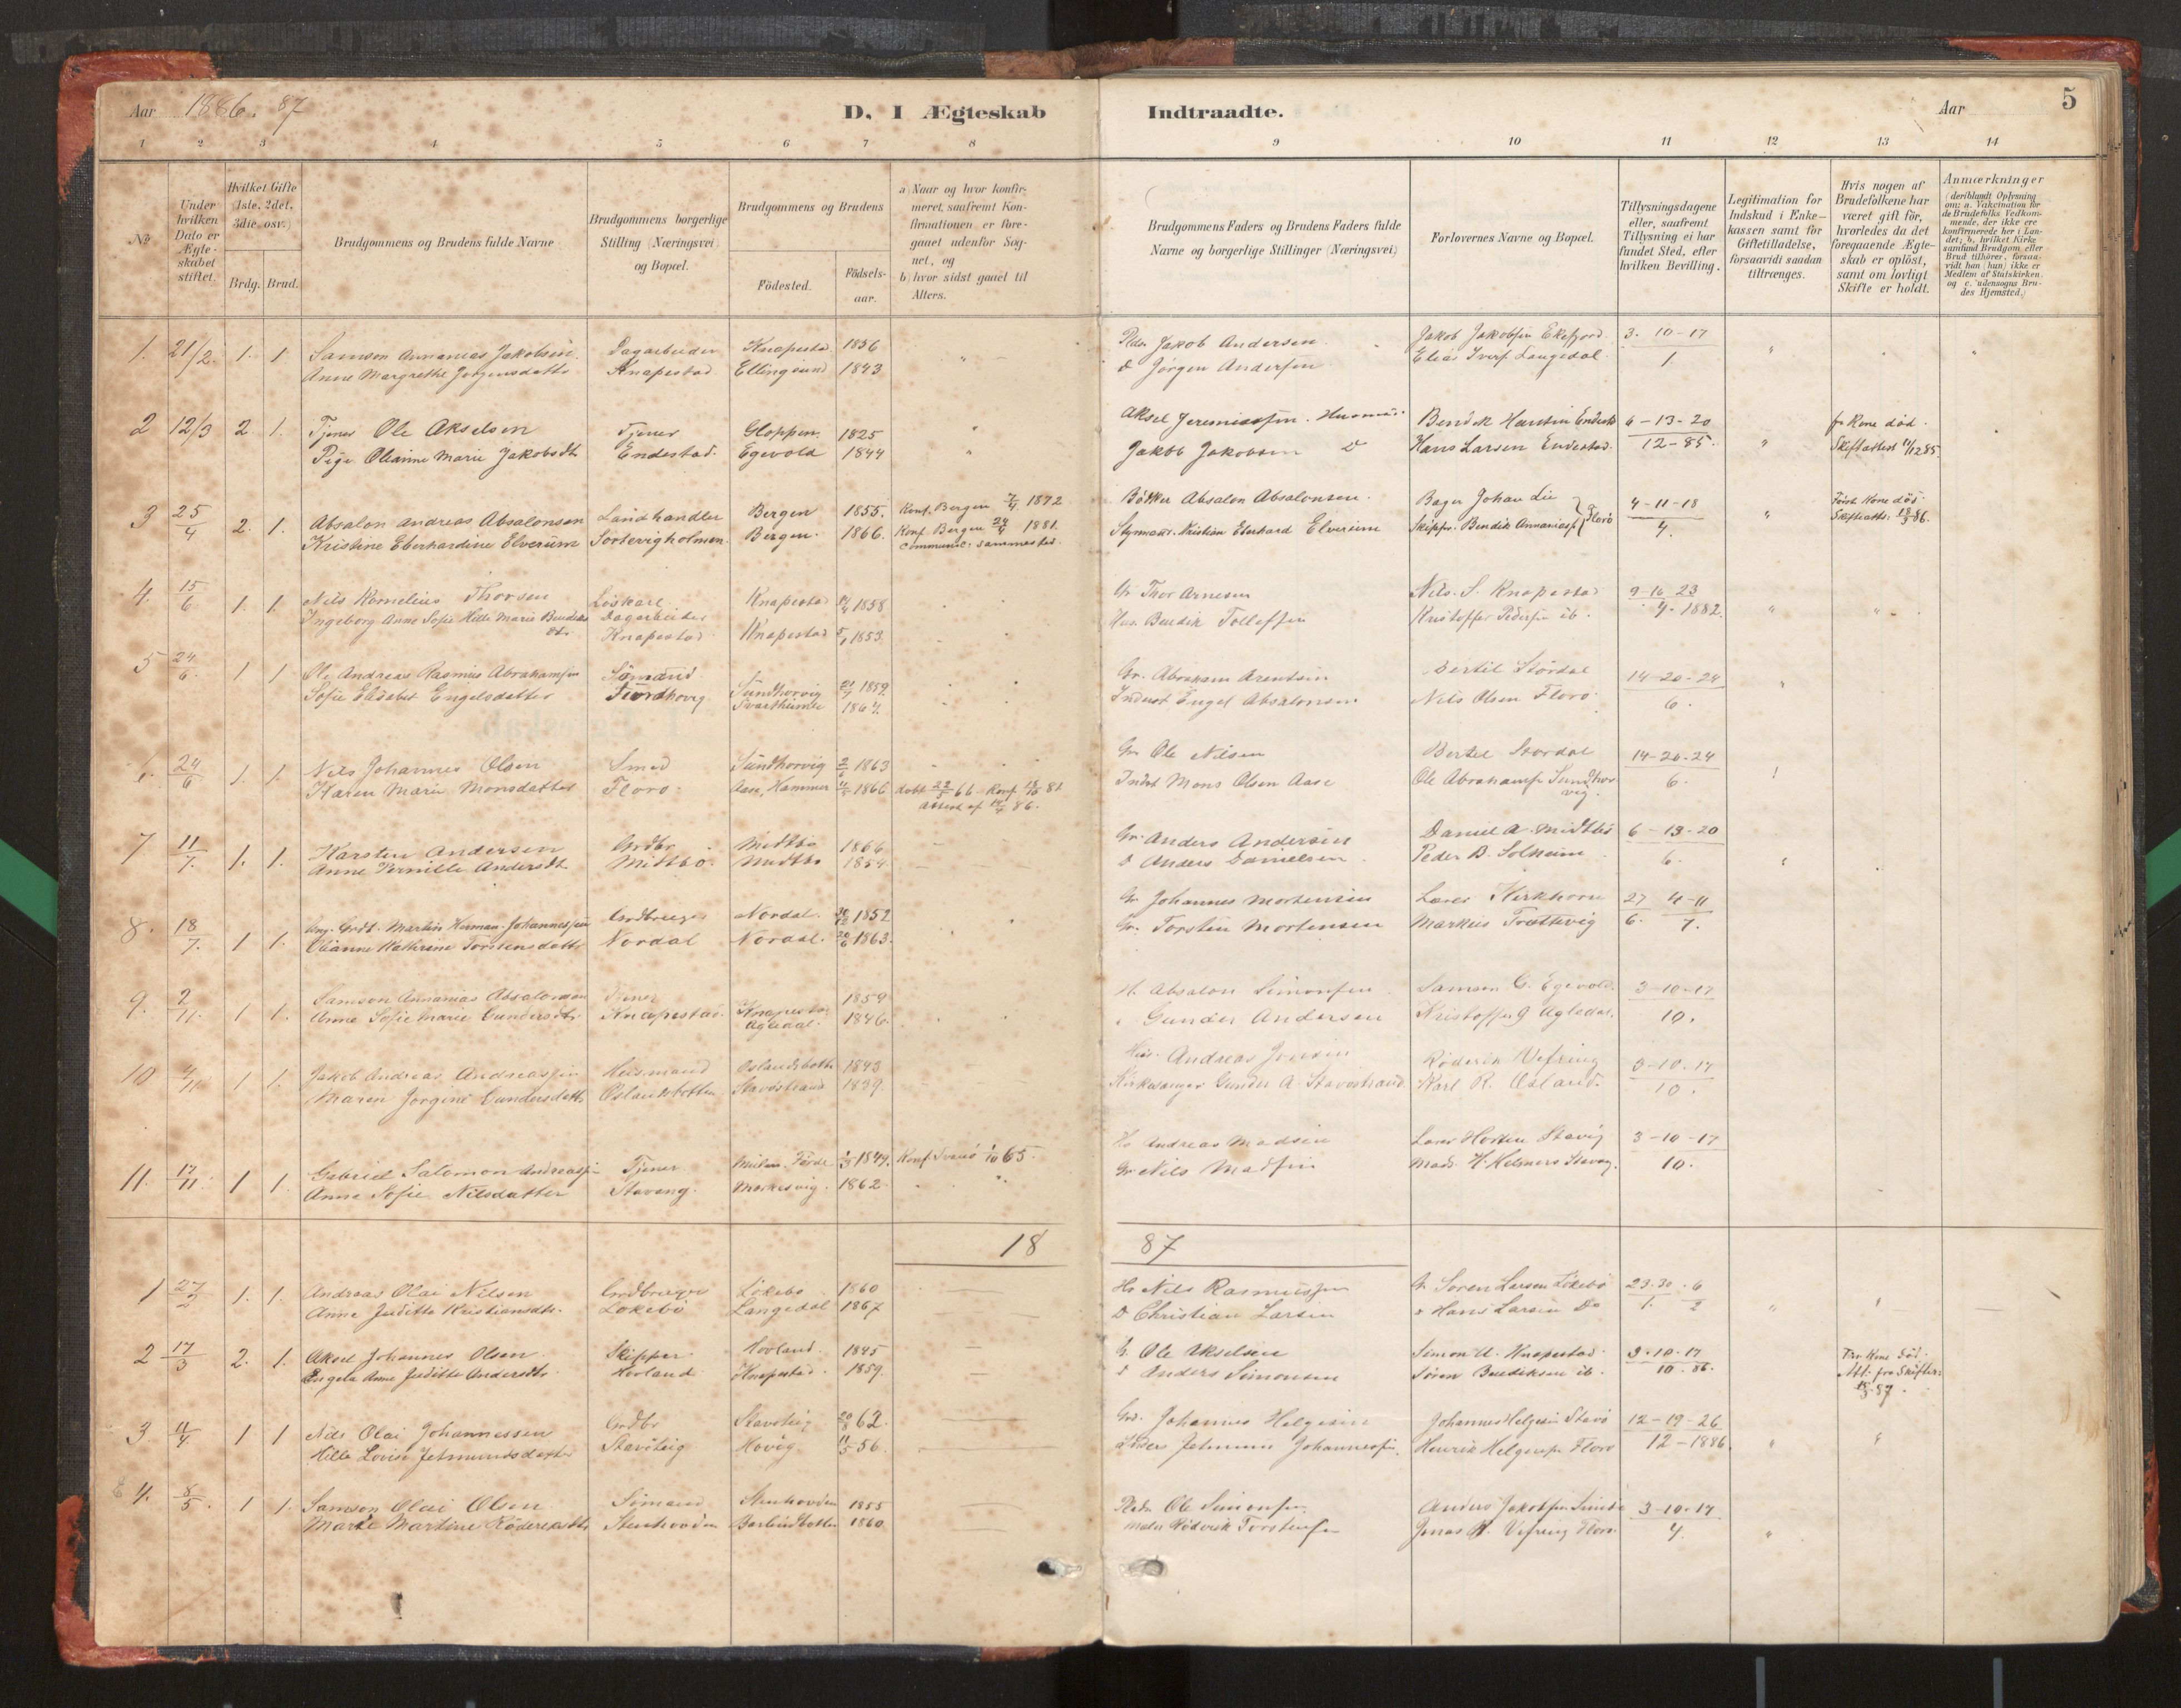 Aar 1886. 87
D. I Ægteskab Indtraadte.
Aar
5
1 2 3 4 5 6 7 8 9 10 11 12 13 14
No
Under hvilken Dato er Ægteskabet stiftet.
Hvilket Gifte (1ste, 2det, 3die osv.)
Brdg. Brud.
Brudgommens og Brudens fulde Navne
Brudgommens borgerlige Stilling (Næringsvei) og Bopæl.
Brudgommens og Brudens
Födested.
Födselsaar.
a) Naar og hvor konfirmeret, saafremt Konfirmationen er foregaaet udenfor Sognet, og
b) hvor sidst gaaet til Alters.
Brudgommens Faders og Brudens Faders fulde Navne og borgerlige Stillinger (Næringsvei)
Forlovernes Navne og Bopæl.
Tillysningsdagene eller, saafremt Tillysning ei har fundet Sted, efter hvilken Bevilling.
Legitimation for Indskud i Enkekassen samt for Giftetilladelse, forsaavidt saadan tiltrænges.
Hvis nogen af Brudefolkene har været gift för, hvorledes da det foregaaende Ægteskab er oplöst, samt om lovligt Skifte er holdt.
Anmærkninger (deriblandt Oplysning om: a. Vakcination for de Brudefolks Vedkommende, der ikke ere konfirmerede her i Landet; b. hvilket Kirkesamfund Brudgom eller Brud tilhörer, forsaavidt han (hun) ikke er Medlem af Statskirken. og c. udensogns Brudes Hjemsted.)
1. 21/2. 1. 1. Samson Annanias Jakobsen. Dagarbeider Knapestad 1856 Jakob Andersen Jakob Jakobsen Eikefjord 3. 10-17
Anne Margrethe Jorgensdatter Knapestad Ellingsund 1843 Jørgen Andersen Elias Langedal 1.
2 12/3 2. 1. Tjener Ole Akselsen Tjener Gloppen. 1825 Aksel Jeremiassen. Husm. Bendik 6-13-20 fr Kone död.
Pige Olianne Marie Jakobsdt Endestad. Egevold 1844 Jakob Jakobsen Do Hans Larsen Endestad. 12-85. Skifteattest 11/12 85.
3 25/4 2. 1. Absalon Andreas Absalonsen Landhandler Bergen 1855. Konf. Bergen 7/4 1872 Bödker Absalon Absalonsen. Bager Johan Lie 4-11-18 Först Kone död.
Kristine Eberhardine Elverum Sortevigholmen. Bergen. 1866. Konf Bergen 24/4 1881. Styrmand. Kristian Eberhard Elverum Skipper. Bendik Annaniass. Florö 4. Skifteatts. 18/3 86.
communic. sammested.
4. 15/6 1. 1. Nils Kornelius Thorsen Löskarl Knapestad 1858 Gr Thor Arnesen Nils. S. Knapestad 9-16 23
Ingeborg Anne Sofie Helle Marie Bendiksdtr Dagarbeider Knapestad Knapestad 1853. Hus. Bendik Tollefsen Kristoffer Pedersen ib. 4. 1882.
5 24/6 1 1 Ole Andreas Rasmus Abrahamsen Sömand Sundhorvig 21/7 1859. Gr. Abraham Arentsen Bertil Stördal 14-20-24
Sofie Elisabet Engelsdatter Fiordhovig Svartheimle 1867. Inderst Engel Absalonsen Nils Olsen Florö. 6.
6. 24/6 1. 1. Nils Johannes Olsen Smed Sundhorvig 1863 Gr. Ole Nilsen Bertel Stordal 14-20-24
Karen Marie Monsdatter Florö. Aase, Hammer 1866 66 Konf 81 Attest af 86. Indst Mons Olsen Aase Ole Abrahamsen Sundhorvig. 6.
7 11/7. 1. 1. Karsten Andersen Grdbr Midtbö 1866 Gr. Anders Andersen Daniel A. Midtbö 6-13-20
Anne Pernille Andersdt Midtbö. Midtbö 1854 Anders Danielsen Peder B. Solheim 6.
8. 18/7. 1 1. Ung. Grdb. Martin Herman Johannesen Grdbruger Nordal. 1852 Gr Johannes Mortensen Lærer Kirkhorn 27/6. 4-11/7.
Olianne Kathrine Torstensdatter Nordal Nordal. 20/6 1863. Gr. Torstein Mortensen Markus Trættevig
9. 2/11. 1 1. Samson Annanias Absalonsen Tjener Knapestad 1859 H. Absalon Simonsen Samson G. Egevold. 3-10-17
Anne Sofie Marie Gundersdtr Knapestad. Agledal. 1846. Gunder Andersen Kristoffer J Agledal. 10.
10 4/11 1 1. Jakob Andreas Andreassen Husmand Oslandsbotten 1843 Hus. Andreas Jonsen Röderik Vefring 3-10-17
Maren Jorgine Gundersdatter Oslandsbotten Stavöstrand 1839. Kirkesanger Gunder A. Stavöstrand Karl R. Osland. 10.
11. 17/11. 1 1. Gabriel Salomon Andreassen Tjener Förde 1849. Konf 65. Andreas Madsen Lærer Stavig 3-10-17
Anne Sofie Nilsdatter Stavang. Markesvig. 1862. Gr Nils Madsen Mads. H. Helmers Stavang. 10.
18 87
1 27/2 1. 1. Andreas Olai Nilsen Grdbruger Lökebö 1860 Hs Nils Rasmussen G. Soren Larsen Lökebö 23.30/1. 6/2
Anne Juditte Kristiansdtr. Lökebö Langedal 1867 Do Christian Larsen Hans Larsen Do
2 17/3 2. 1. Aksel Johannes Olsen. Skipper Hovland. 1845 Ole Akselsen Simon A. Knapestad. 3.10.17 För Kone död.
Engela Anne Juditte Andersdtr. Hovland Knapestad. 1859. Anders Simonsen Sören Bendiksen ib. 10. 86. Att. fra Skifter. 87.
3. 11/4. 1 1 Nils Olai Johannessen Grdbr Stavöteig 62. Grd. Johannes Helgesen Johannes Helgesen Stavö 12-19-26
Hille Lovise Jetmundsdatter Stavöteig Hovig. 11/5 56. Jetmund Johannessen. Henrik Helgesen Florö 12-1886.
4. 8/5. 1 1. Samson Olai Olsen Sömand Stenhovden 1855 Ole Simonsen Anders Jakobsen 3-10-17
Marte Martine Röderiksdtr Stenhovden Barlindbotten 1860 Röderik Torstensen Jonas R. Vefring Florö. 4.